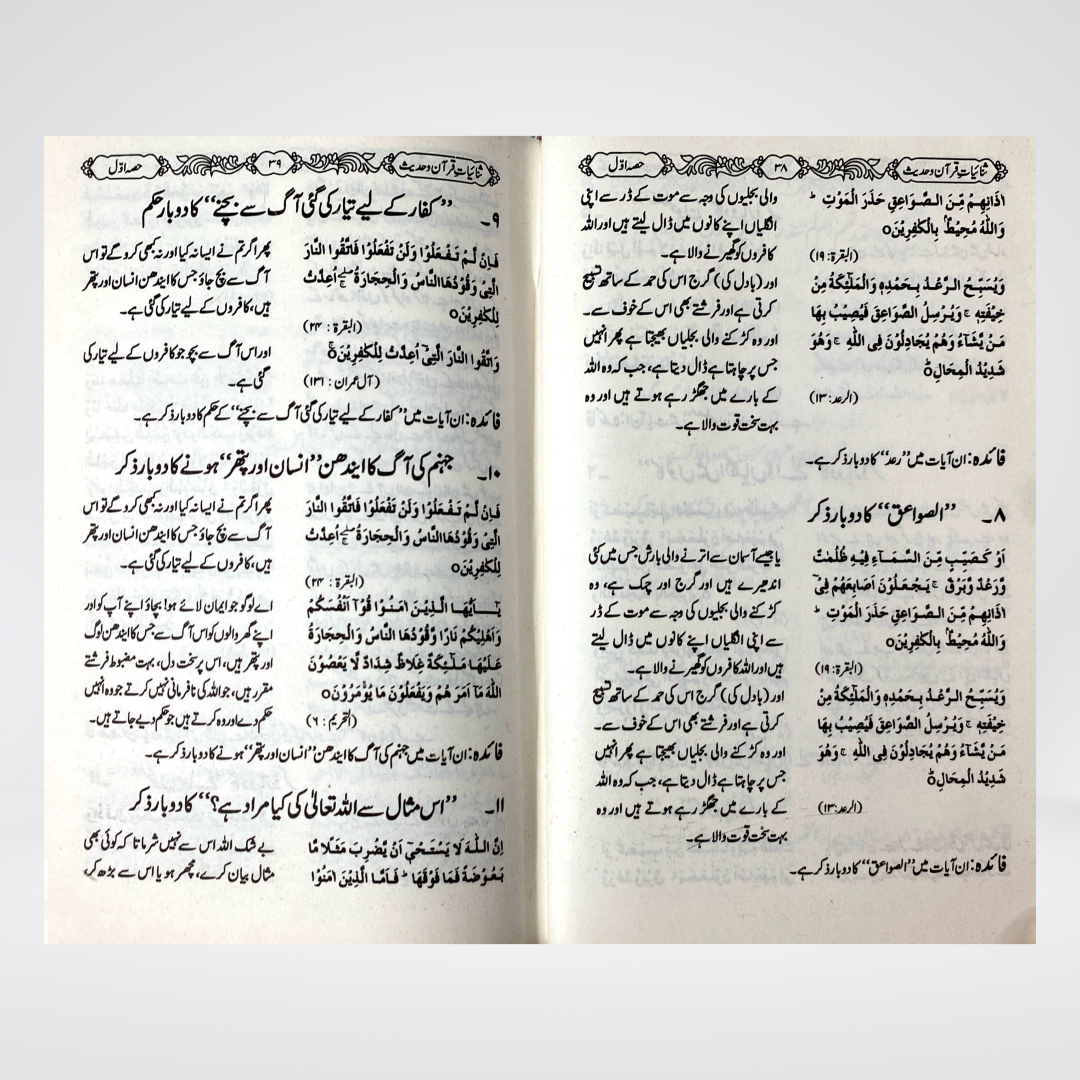 ثنائیات قرآن و حدیث ۳۸ حصہ اوّل
اٰذَانِهِمْ مِّنَ الصَّوَاعِقِ حَذَرَ الْمَوْتِ ؕ
وَاللّٰهُ مُحِيْطٌۢ بِالْكٰفِرِيْنَ○
(البقرۃ: ۱۹)
والی بجلیوں کی وجہ سے موت کے ڈر سے اپنی
انگلیاں اپنے کانوں میں ڈال لیتے ہیں اور اللہ
کافروں کو گھیرنے والا ہے۔
وَيُسَبِّحُ الرَّعْدُ بِحَمْدِهٖ وَالْمَلٰٓئِكَةُ مِنْ
خِيْفَتِهٖ ۚ وَيُرْسِلُ الصَّوَاعِقَ فَيُصِيْبُ بِهَا
مَنْ يَّشَآءُ وَهُمْ يُجَادِلُوْنَ فِى اللّٰهِ ۚ وَهُوَ
شَدِيْدُ الْمِحَالِ○ؕ
(الرعد: ۱۳)
اور (بادل کی) گرج اس کی حمد کے ساتھ تسبیح
کرتی ہے اور فرشتے بھی اس کے خوف سے۔
اور وہ کڑکنے والی بجلیاں بھیجتا ہے پھر انہیں
جس پر چاہتا ہے ڈال دیتا ہے، جب کہ وہ اللہ
کے بارے میں جھگڑ رہے ہوتے ہیں اور وہ
بہت سخت قوت والا ہے۔
فائدہ: ان آیات میں ”رعد“ کا دوبار ذکر ہے۔
۸۔ ”الصواعق“ کا دوبار ذکر
اَوْ كَصَيِّبٍ مِّنَ السَّمَآءِ فِيْهِ ظُلُمٰتٌ
وَّرَعْدٌ وَّبَرْقٌ ۚ يَجْعَلُوْنَ اَصَابِعَهُمْ فِىْٓ
اٰذَانِهِمْ مِّنَ الصَّوَاعِقِ حَذَرَ الْمَوْتِ ؕ
وَاللّٰهُ مُحِيْطٌۢ بِالْكٰفِرِيْنَ○
(البقرۃ: ۱۹)
یا جیسے آسمان سے اترنے والی بارش جس میں کئی
اندھیرے ہیں اور گرج اور چمک ہے، وہ
کڑکنے والی بجلیوں کی وجہ سے موت کے ڈر
سے اپنی انگلیاں اپنے کانوں میں ڈال لیتے
ہیں اور اللہ کافروں کو گھیرنے والا ہے۔
وَيُسَبِّحُ الرَّعْدُ بِحَمْدِهٖ وَالْمَلٰٓئِكَةُ مِنْ
خِيْفَتِهٖ ۚ وَيُرْسِلُ الصَّوَاعِقَ فَيُصِيْبُ بِهَا
مَنْ يَّشَآءُ وَهُمْ يُجَادِلُوْنَ فِى اللّٰهِ ۚ وَهُوَ
شَدِيْدُ الْمِحَالِ○ؕ
(الرعد: ۱۳)
اور (بادل کی) گرج اس کی حمد کے ساتھ تسبیح
کرتی ہے اور فرشتے بھی اس کے خوف سے۔
اور وہ کڑکنے والی بجلیاں بھیجتا ہے پھر انہیں
جس پر چاہتا ہے ڈال دیتا ہے، جب کہ وہ اللہ
کے بارے میں جھگڑ رہے ہوتے ہیں اور وہ
بہت سخت قوت والا ہے۔
فائدہ: ان آیات میں ”الصواعق“ کا دوبار ذکر ہے۔
ثنائیات قرآن و حدیث ۳۹ حصہ اوّل
۹۔ ”کفار کے لیے تیار کی گئی آگ سے بچنے“ کا دوبار حکم
فَاِنْ لَّمْ تَفْعَلُوْا وَلَنْ تَفْعَلُوْا فَاتَّقُوا النَّارَ
الَّتِىْ وَقُوْدُهَا النَّاسُ وَالْحِجَارَةُ ۖۚ اُعِدَّتْ
لِلْكٰفِرِيْنَ○
(البقرۃ: ۲۴)
پھر اگر تم نے ایسا نہ کیا اور نہ کبھی کرو گے تو اس
آگ سے بچ جاؤ جس کا ایندھن انسان اور پتھر
ہیں، کافروں کے لیے تیار کی گئی ہے۔
وَاتَّقُوا النَّارَ الَّتِىْٓ اُعِدَّتْ لِلْكٰفِرِيْنَ○ۚ
(آل عمران: ۱۳۱)
اور اس آگ سے بچو جو کافروں کے لیے تیار کی
گئی ہے۔
فائدہ: ان آیات میں ”کفار کے لیے تیار کی گئی آگ سے بچنے“ کے حکم کا دوبار ذکر ہے۔
۱۰۔ جہنم کی آگ کا ایندھن ”انسان اور پتھر“ ہونے کا دوبار ذکر
فَاِنْ لَّمْ تَفْعَلُوْا وَلَنْ تَفْعَلُوْا فَاتَّقُوا النَّارَ
الَّتِىْ وَقُوْدُهَا النَّاسُ وَالْحِجَارَةُ ۖۚ اُعِدَّتْ
لِلْكٰفِرِيْنَ○
(البقرۃ: ۲۴)
پھر اگر تم نے ایسا نہ کیا اور نہ کبھی کرو گے تو اس
آگ سے بچ جاؤ جس کا ایندھن انسان اور پتھر
ہیں، کافروں کے لیے تیار کی گئی ہے۔
يٰٓاَيُّهَا الَّذِيْنَ اٰمَنُوْا قُوْٓا اَنْفُسَكُمْ
وَاَهْلِيْكُمْ نَارًا وَّقُوْدُهَا النَّاسُ وَالْحِجَارَةُ
عَلَيْهَا مَلٰٓئِكَةٌ غِلَاظٌ شِدَادٌ لَّا يَعْصُوْنَ
اللّٰهَ مَآ اَمَرَهُمْ وَيَفْعَلُوْنَ مَا يُؤْمَرُوْنَ○
(التحریم: ۶)
اے لوگو جو ایمان لائے ہو! بچاؤ اپنے آپ کو اور
اپنے گھر والوں کو اس آگ سے جس کا ایندھن لوگ
اور پتھر ہیں، اس پر سخت دل، بہت مضبوط فرشتے
مقرر ہیں، جو اللہ کی نافرمانی نہیں کرتے جو وہ انہیں
حکم دے اور وہ کرتے ہیں جو حکم دیے جاتے ہیں۔
فائدہ: ان آیات میں جہنم کی آگ کا ایندھن ”انسان اور پتھر“ ہونے کا دوبار ذکر ہے۔
۱۱۔ ”اس مثال سے اللہ تعالیٰ کی کیا مراد ہے؟“ کا دوبار ذکر
اِنَّ اللّٰهَ لَا يَسْتَحْىٖٓ اَنْ يَّضْرِبَ مَثَلًا مَّا
بَعُوْضَةً فَمَا فَوْقَهَا ؕ فَاَمَّا الَّذِيْنَ اٰمَنُوْا
بے شک اللہ اس سے نہیں شرماتا کہ کوئی بھی
مثال بیان کرے، مچھر ہو یا اس سے بڑھ کر،